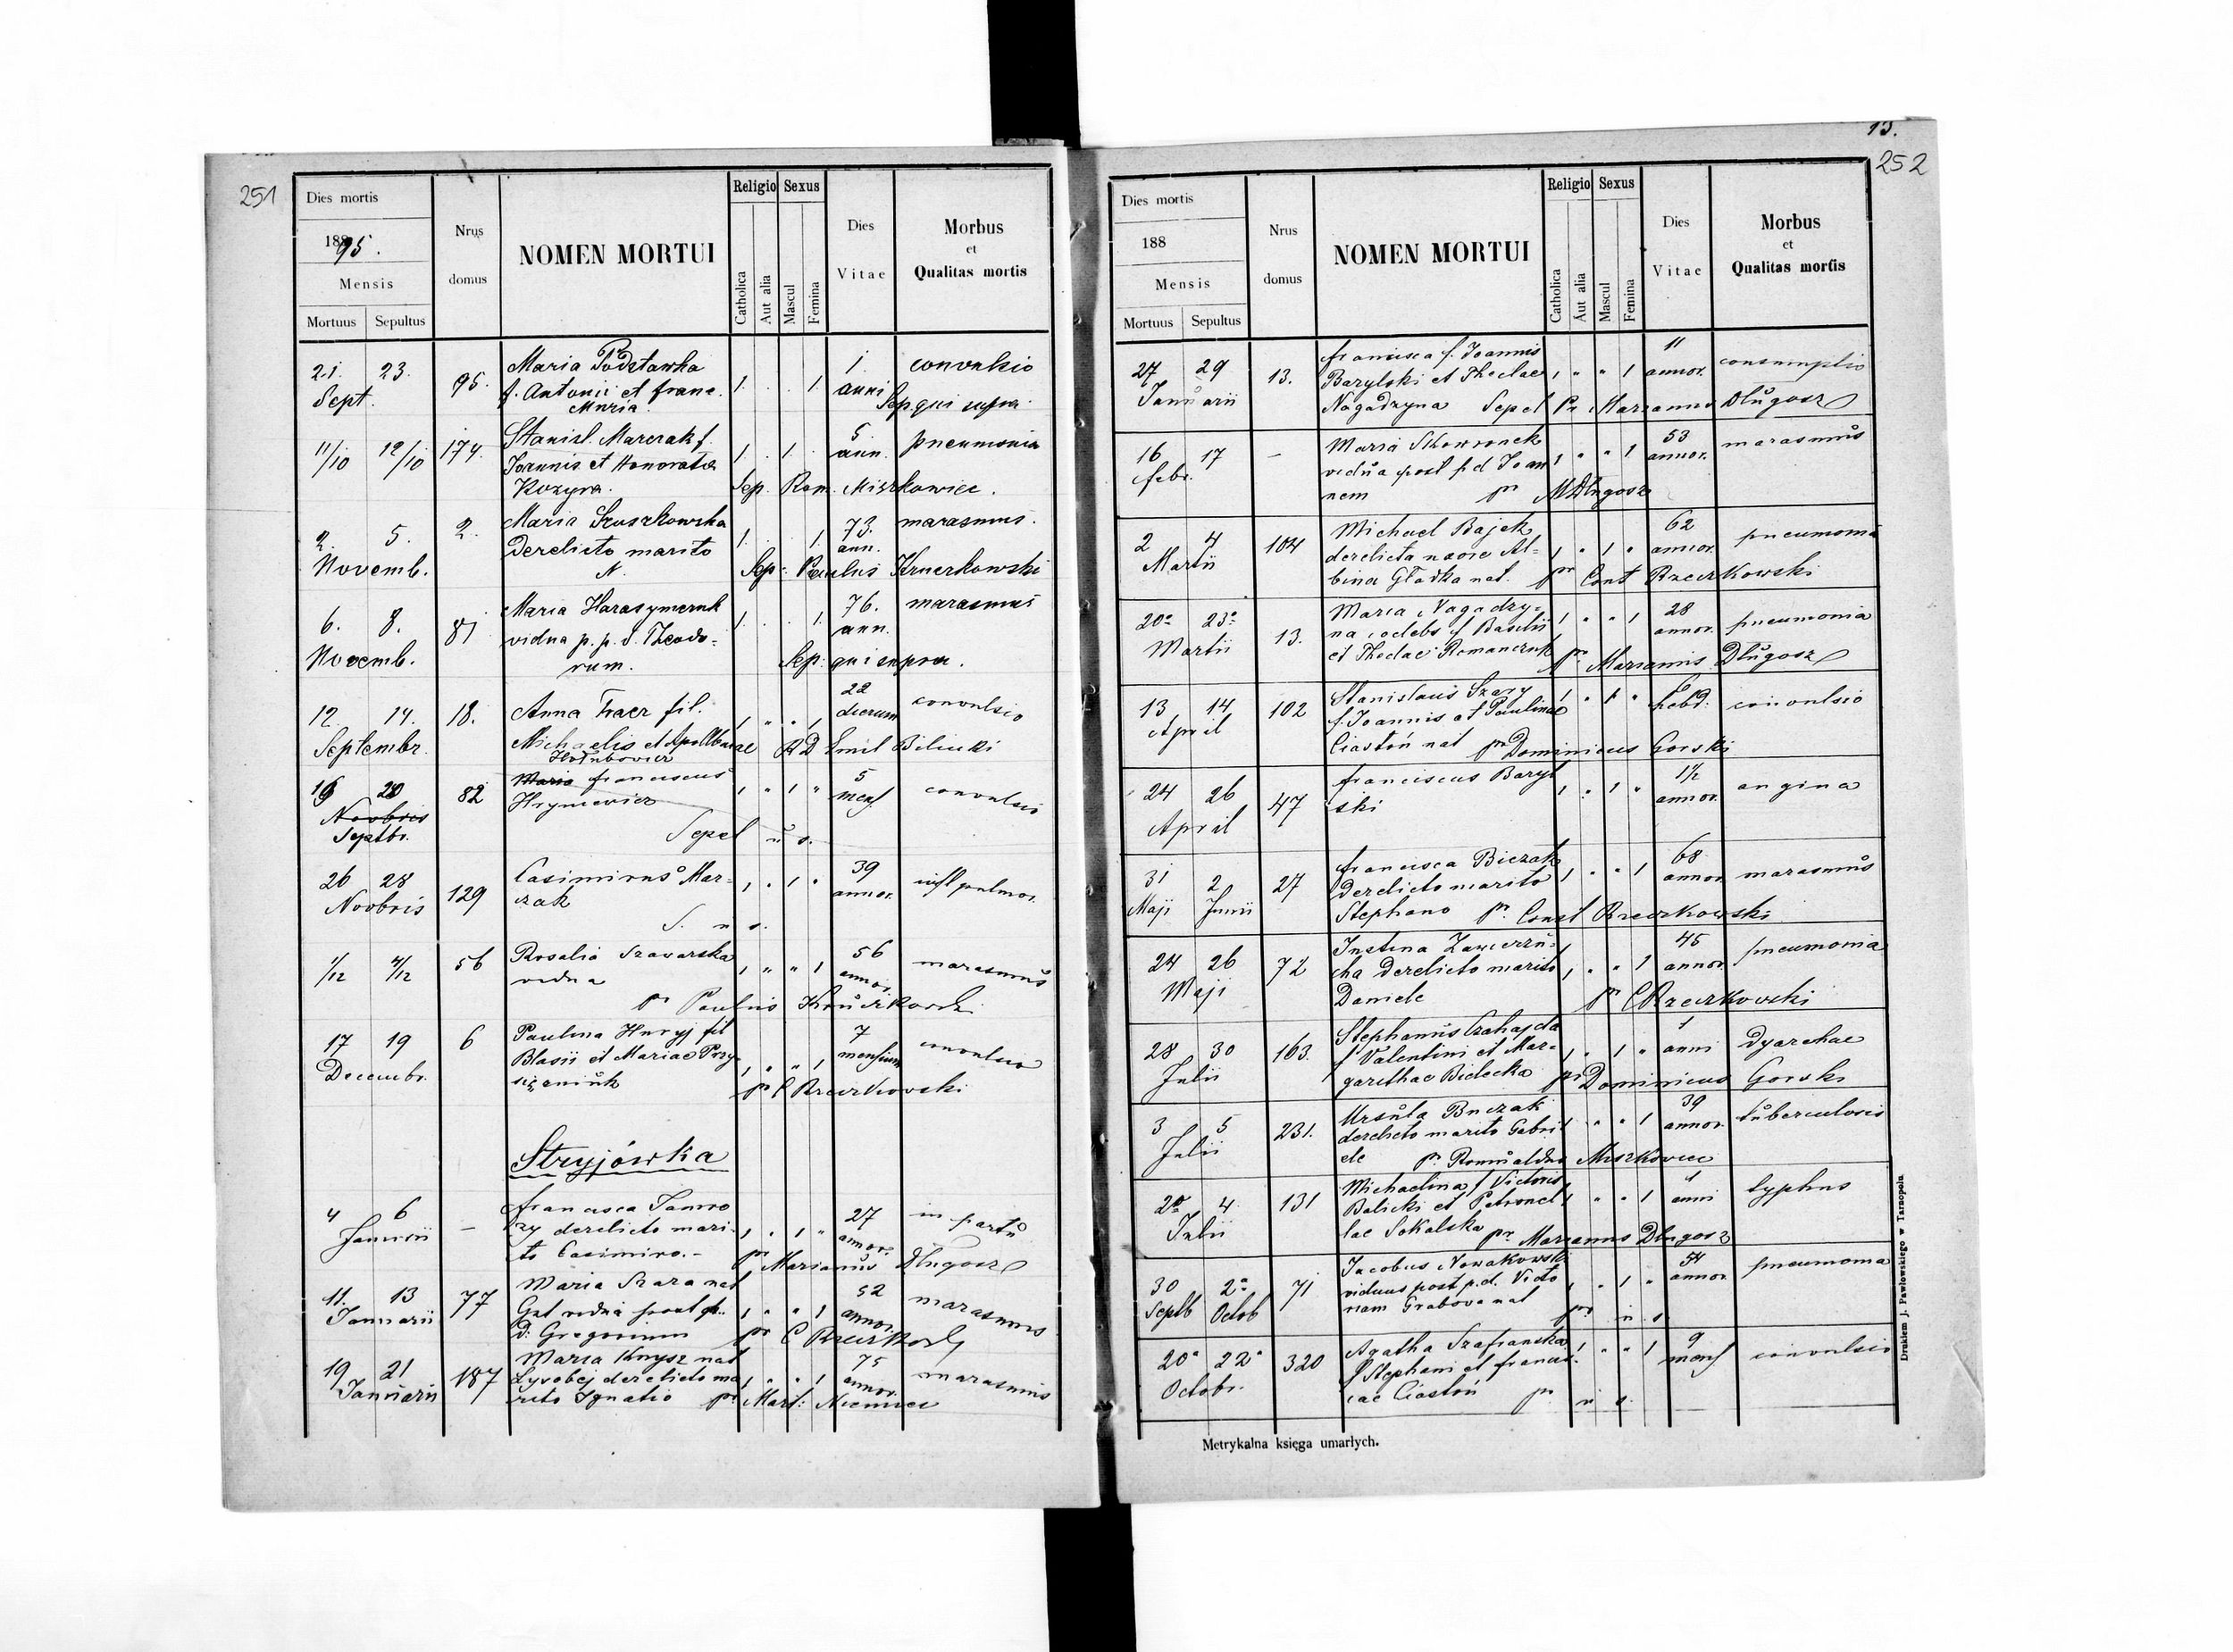 251
Dies mortis
1895.
Mensis
Mortuus Sepultus
Nrus domus
NOMEN MORTUI
Religio Sexus
Catholica
Aut alia
Mascul
Femina
Dies Vitae
Morbus
et
Qualitas mortis
21. 23. Sept. 95.
Maria Podstawka 1. 1. 1. convulsio
f. Antonii et Franc. anni
Muzia. Sep. qui supra
11/10 12/10 174.
Stanisl. Marczak f. 1. 1. 5. pneumonia
Joannis et Honorata ann.
Kozyra. Sep. Rom. Miszkowiec.
2. 5. Novemb. 2.
Maria Szuszkowska 1. 1. 73. marasmus.
derelicto marito ann.
N. Sep: Paulus Kruczkowski
6. 8. Novemb. 81
Maria Harasymczuk 1. 1. 76. marasmus
vidua p. p. d. Theodo- ann.
rum. Sep: qui supra.
12. 14. Septembr. 18.
Anna Tracz fil. 1 " " 1 22 dierum convulsio
Michaelis et Apolloniae RD Emil Bilinki
Hołubowicz
19 20 Septbr. 82
Franciscus 1 " 1 " 5 mens convulsio
Hryniewicz
Sepel u. s.
26 28 Novbris 129
Casimirus Mar- 1 " 1 " 39 annor. infl pulmon.
czak
S. u s.
1/12 4/12 56
Rosalia Szawarska 1 " " 1 56 annor. marasmus
vidua
pr Paulus Kruczkowski
17 19 Decembr. 6
Paulina Huryj fil 1 " " 1 7 mensium convulsio
Blasii et Mariae Przy-
siężniuk pr C Rzeczkowski
Stryjówka
4 6 Januarii —
Francisca Jawro 1 " 1 " 27 annor. in partu
zy derelicto mari-
to Casimiro. - pr Marianus Długosz
11. 13 Januarii 77
Maria Szara nat 1 " " 1 52 annor. marasmus
vidua post p.
D: Gregorium pr C Rzeczkowski
19 21 Januarii 187
Maria Knysz nat 1 " " 1 75 annor. marasmus
Łysobej derelicto ma
rito Ignatio pr Mart: Niemiec
13.
252
Dies mortis
188
Mensis
Mortuus Sepultus
Nrus domus
NOMEN MORTUI
Religio Sexus
Catholica
Aut alia
Mascul
Femina
Dies Vitae
Morbus
et
Qualitas mortis
27 29 Januarii 13.
Francisca f. Joannis 11 consumptio
Barylski et Theclae 1 " " 1 annor.
Nagadzyna Sepel Pr. Marianus Długosz
16 17 febr. —
Maria Skowronek 1 " " 1 53 annor. marasmus
vidua post p d Joan
nem pr M Długosz
2 4 Martii 104
Michael Bajek 62 pneumonia
derelicta uxore Al= 1 " 1 " annor.
bina Gładka nat. pr Const Rzeczkowski
20a 23a Martii 13.
Maria Nagadzy= 1 " " 1 28 annor. pneumonia
na coelebs f Basilii
et Theclae Romanczuk pr Marianus Długosz
13 14 April 102
Stanislaus Szary 1 " 1 " 6 hebd. convulsio
f. Joannis et Paulinae
Ciastoń nat pr Dominicus Gorski
24 26 April 47
Franciscus Baryl 1 " 1 " 1 1/2 annor. angina
ski
31 Maji 2 Junii 27
Francisca Biczak 68 marasmus
derelicto marito 1 " " 1 annor.
Stephano pr. Const Rzeczkowski
24 26 Maji 72
Justina Zawierzu= 45 pneumonia
cha derelicto marito 1 " " 1 annor.
Daniele pr C Rzeczkowski
28 30 Julii 163.
Stephanus Czahajda 1 dyarchae
f Valentini et Mar= 1 " 1 " anni
garethae Bielecka pr Dominicus Gorski
3 5 Julii 231.
Ursula Buczak 39 tuberculosis
derelicto marito Gabri 1 " " 1 annor.
ele pr. Romualdus Miszkowiec
2a 4 Julii 131
Michaelina f Victoris 1 typhus
Balicki et Petronel 1 " " 1 anni
lae Sokalska pr. Marianus Długosz
30 Septb 2a Octob 71
Jacobus Nowakowski 54 pneumonia
viduus post p.d. Victo 1 " 1 " annor.
riam Grabova nat pr u. s
20a 22a Octobr. 320
Agatha Szafranska 1 " " 1 9 mens convulsio
f Stephani et Francis-
cae Ciastoń pr u s.
Metrykalna księga umarłych.
Drukiem J. Pawłowskiego w Tarnopolu